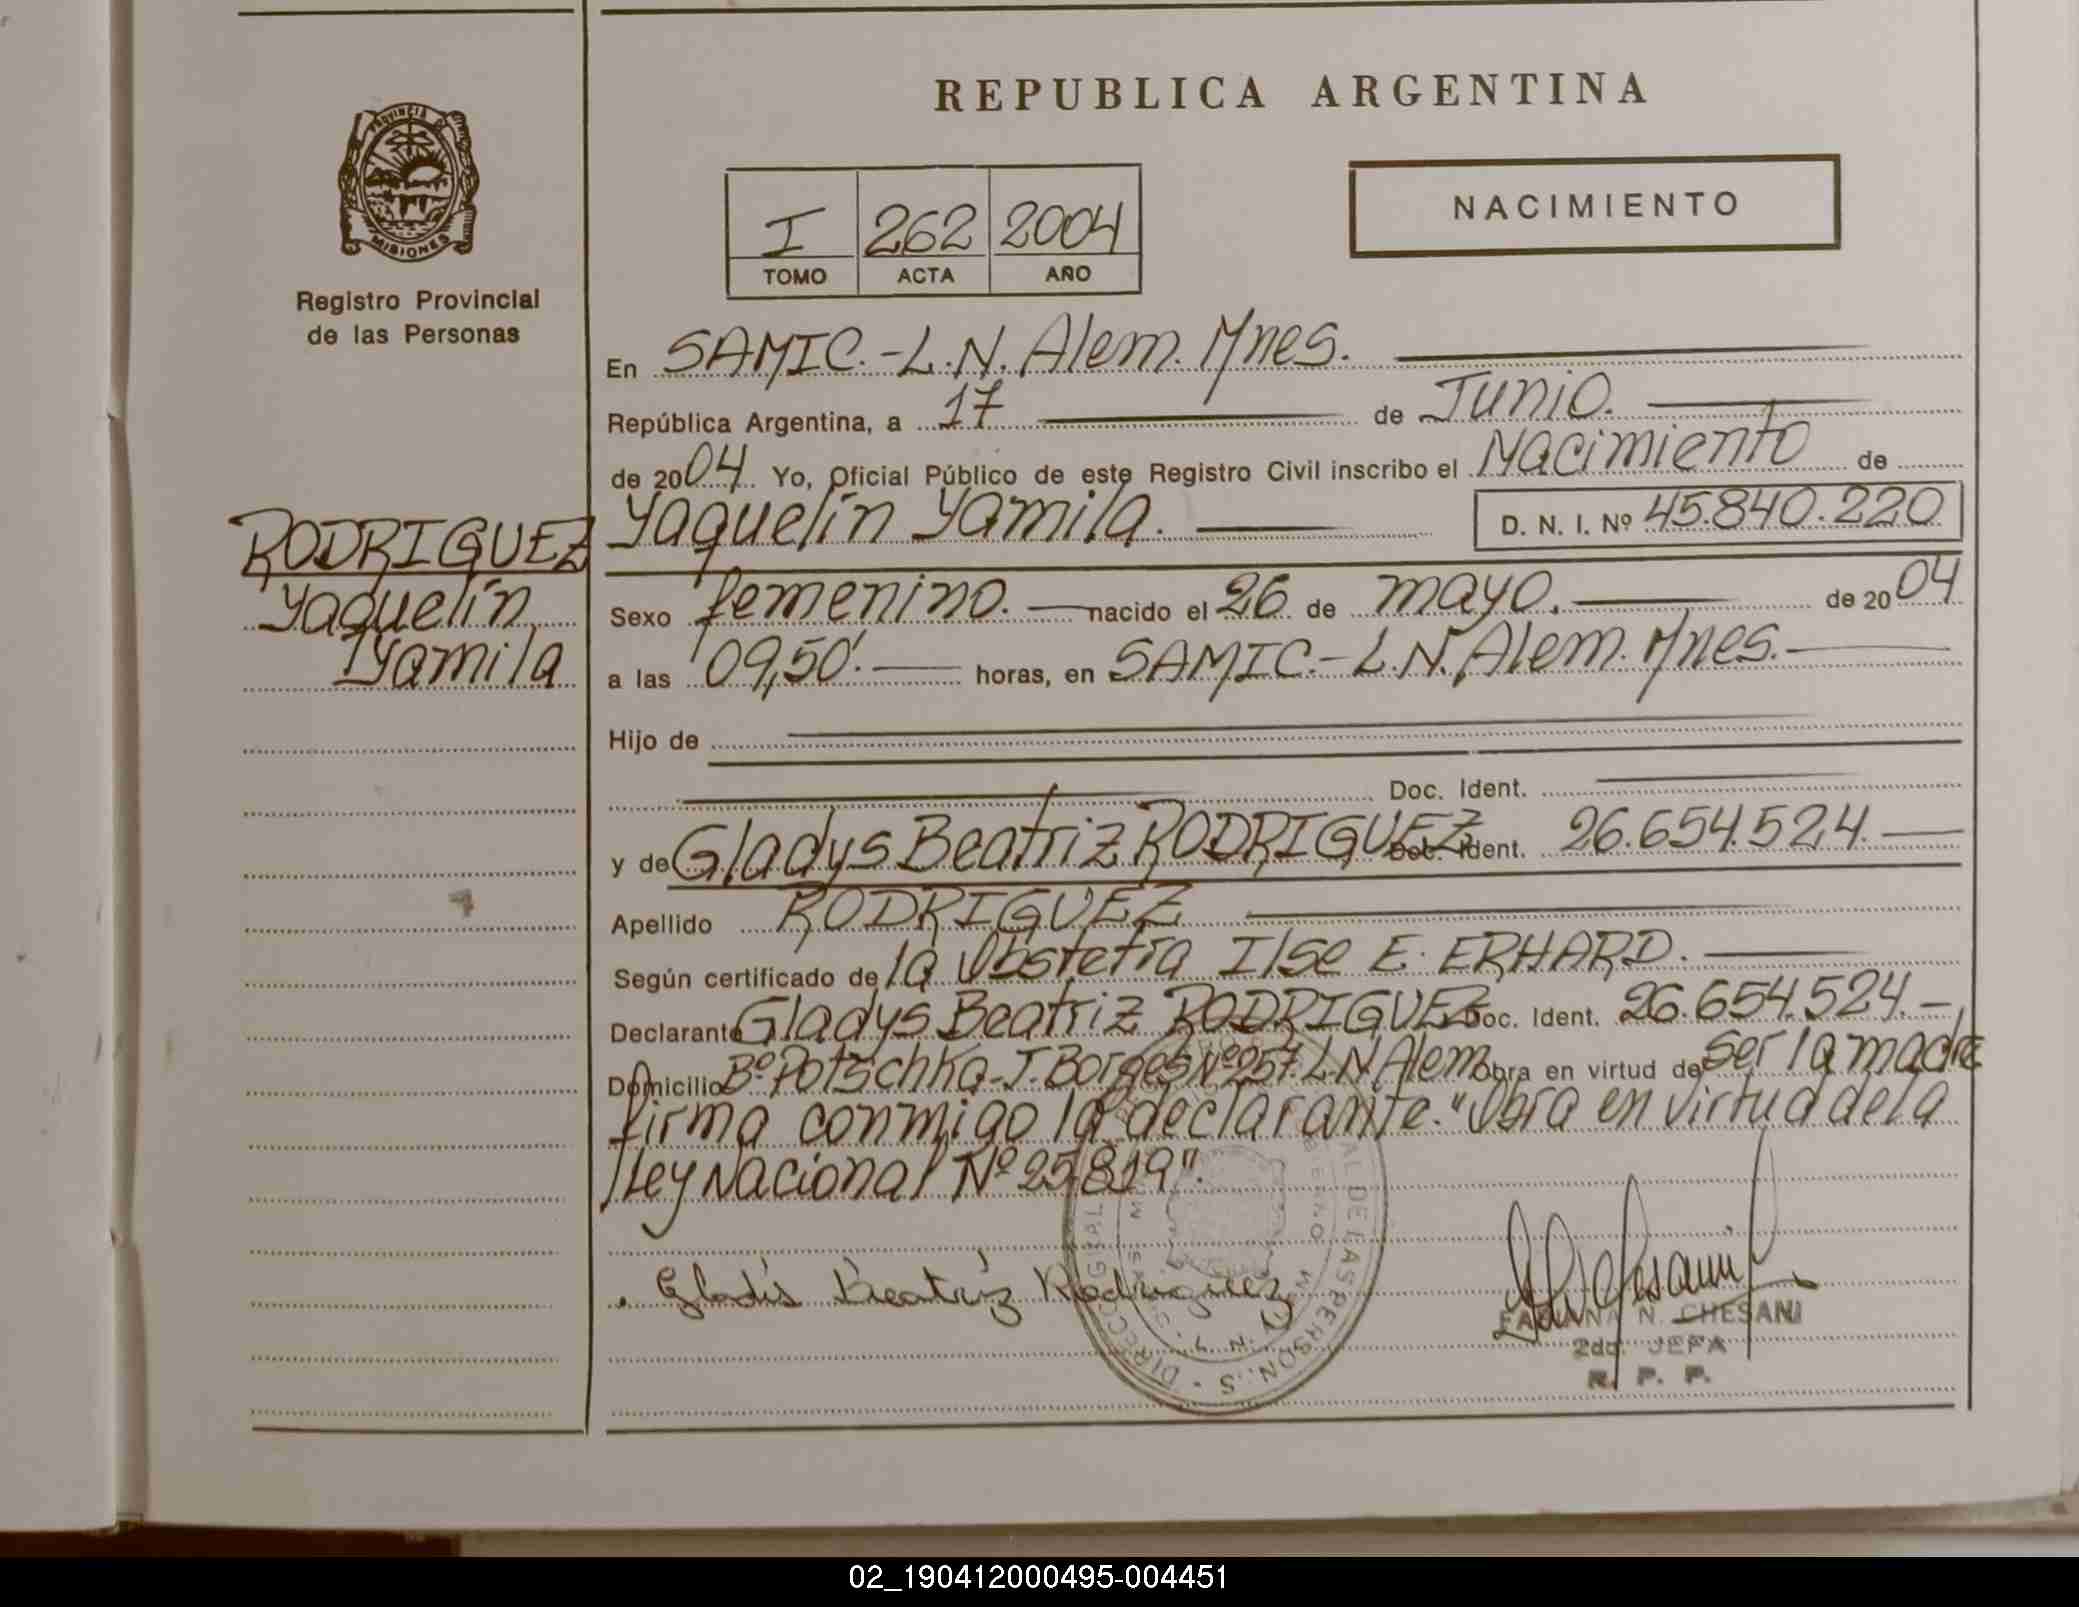 REPUBLICA ARGENTINA
PROVINCIA DE
MISIONES
Registro Provincial
de las Personas
I 262 2004
TOMO ACTA AÑO
NACIMIENTO
En SAMIC.-L.N. Alem. Mnes.
República Argentina, a 17 de Junio.
de 2004. Yo, Oficial Público de este Registro Civil inscribo el Nacimiento de
RODRIGUEZ
Yaquelín
Yamila
Yaquelín Yamila. D. N. I. Nº 45.840.220
Sexo femenino. nacido el 26 de mayo. de 2004
a las 09,50'. horas, en SAMIC.-L.N. Alem. Mnes.
Hijo de
Doc. Ident.
y de Gladys Beatriz RODRIGUEZ Doc. Ident. 26.654.524.
Apellido RODRIGUEZ
Según certificado de la Obstetra Ilse E. ERHARD.
Declarante Gladys Beatriz RODRIGUEZ Doc. Ident. 26.654.524.-
Domicilio Bº Potschka-J. Borges Nº 257. L.N. Alem Obra en virtud de ser la madre
firma conmigo la declarante. "Obra en virtud de la
Ley Nacional Nº 25.819".
Gladis Beatriz Rodriguez
FABIANA N. CHESANI
2da. JEFA
R. P. P.
02_190412000495-004451